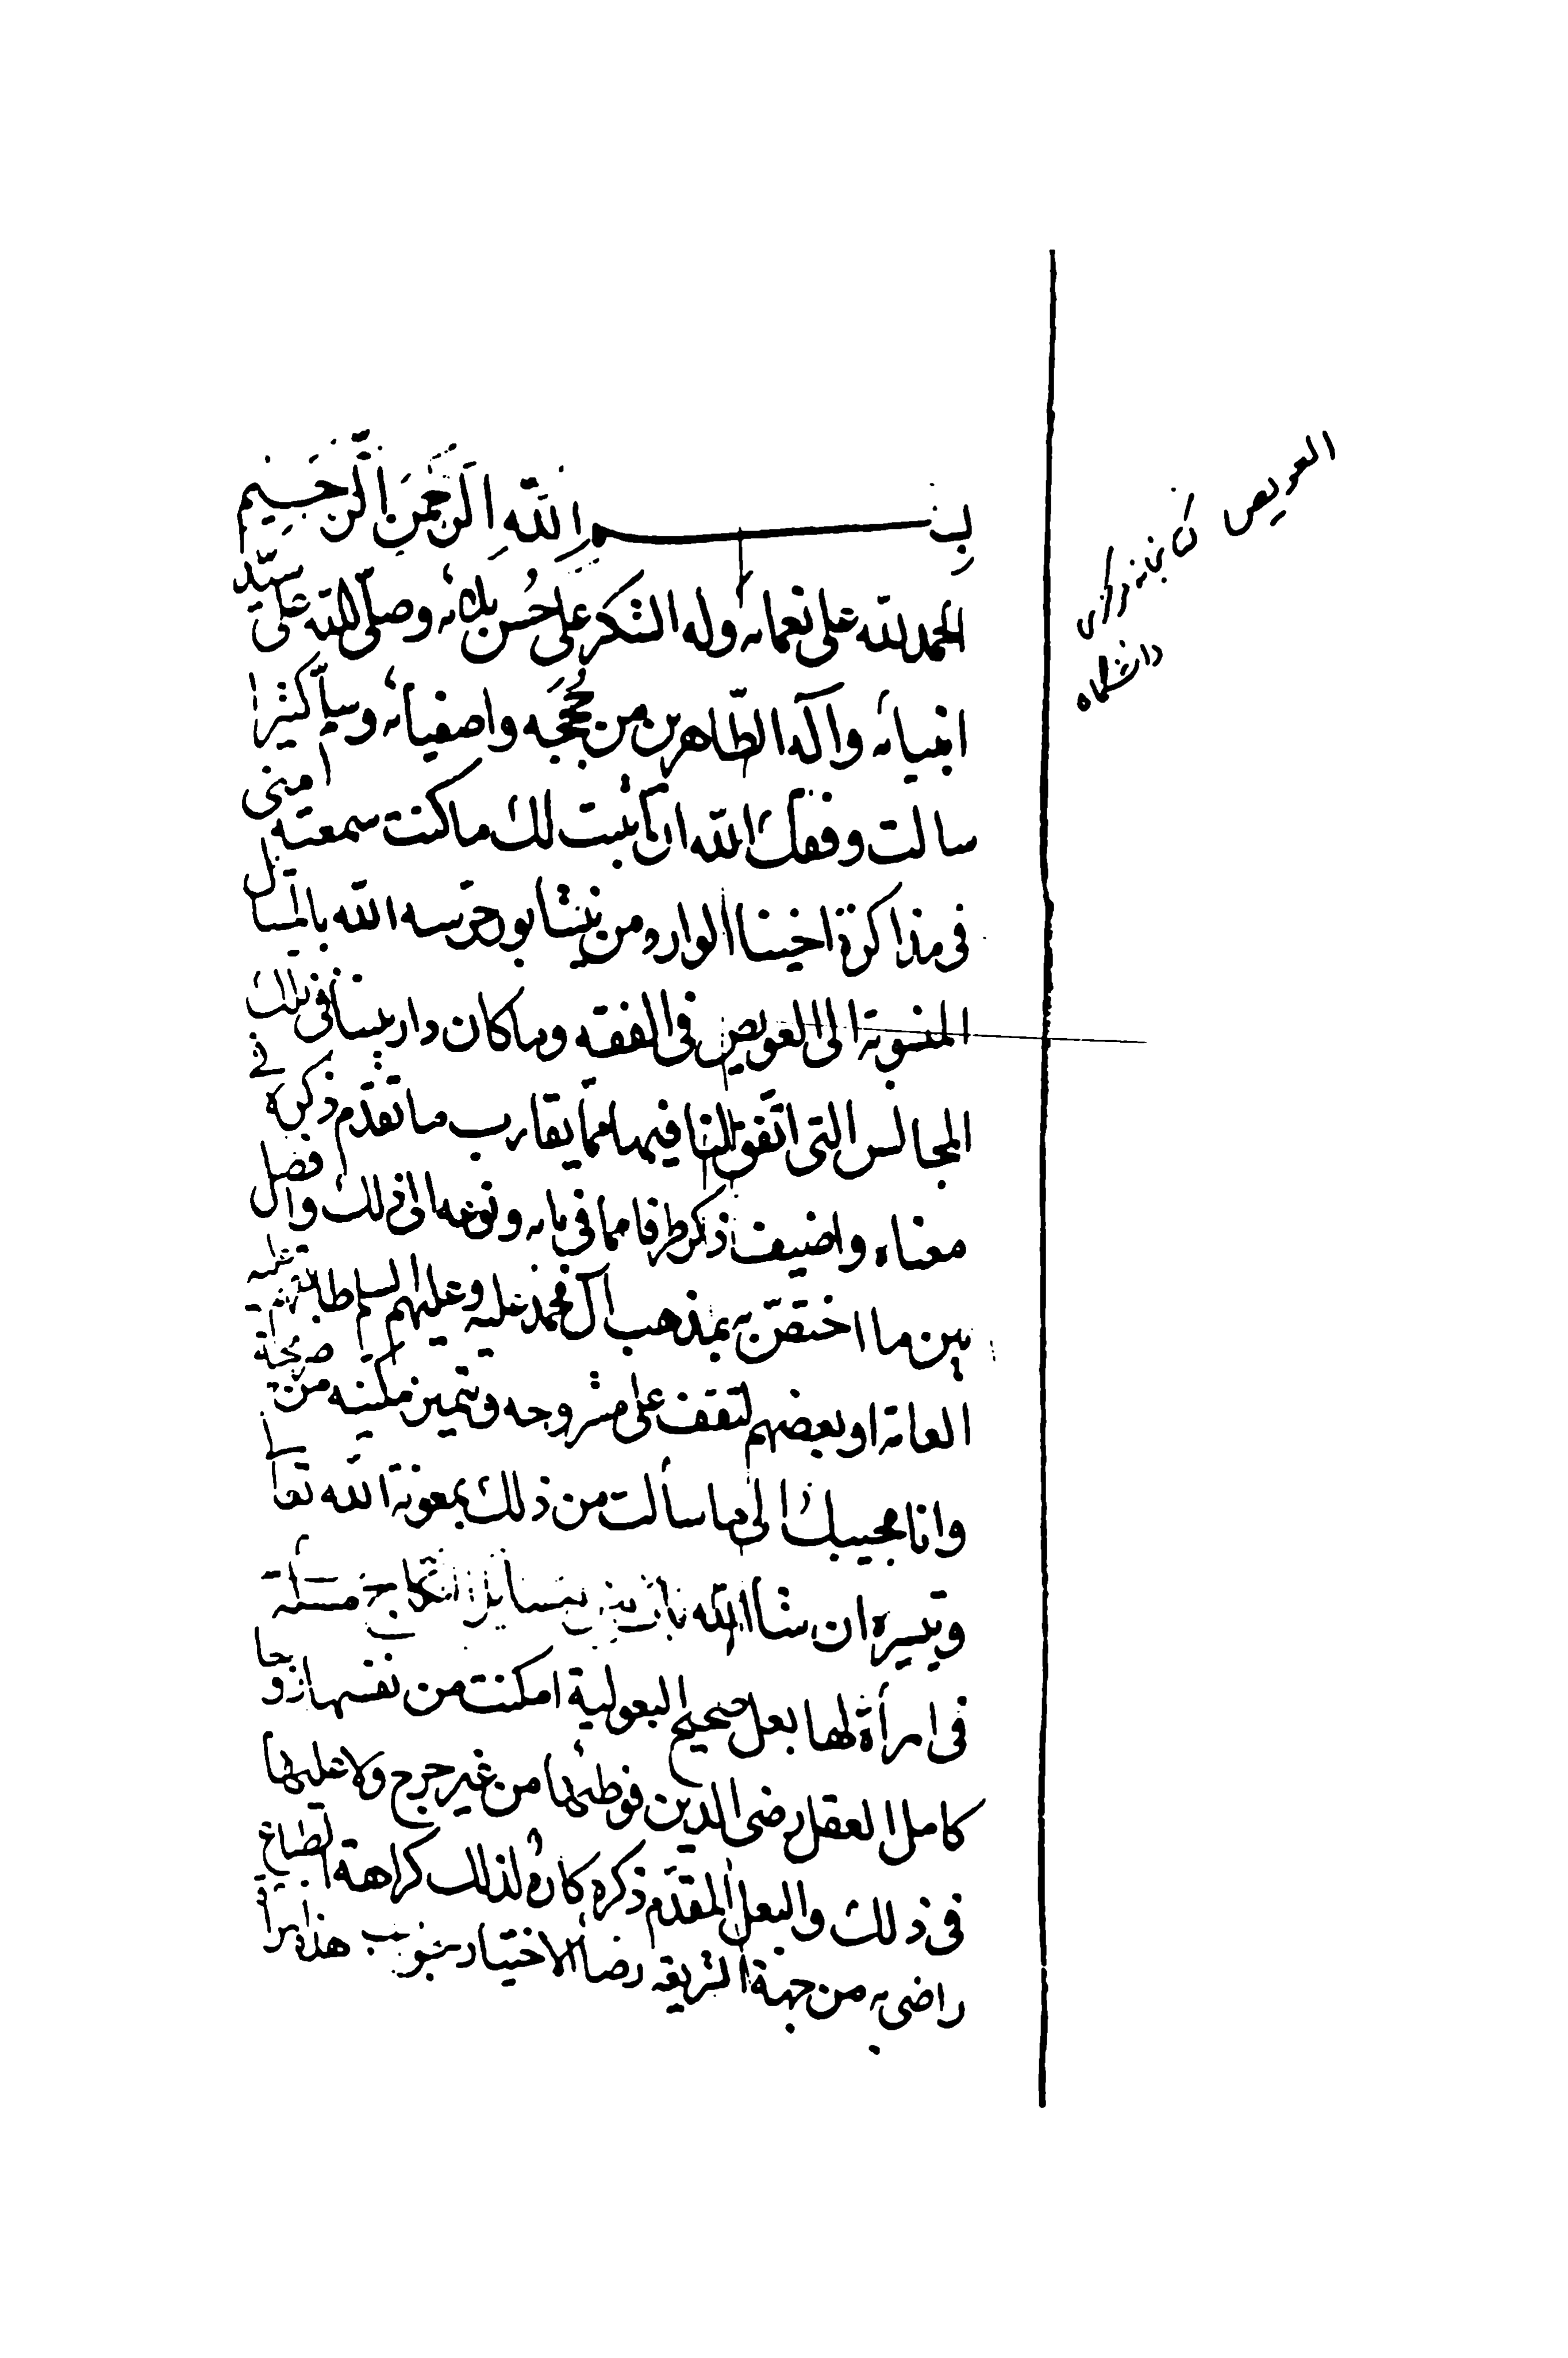 بسم الله الرحمن الرحيم
الحمد لله على نعمائه وله الشكر على حسن بلائه وصلى الله على سيد
انبيائه وآله الطاهرين من حججه واصفيائه وسلم كثيرا
سالت وفقك الله ان اثبت لك ما كنت سمعته منى
فى مذاكرة اخينا الوارد من نيشابور حرسه الله بالمسائل
المنسوبة الى العويص فى الفقه وما كان دار بيننا فى تلك
المجالس التى اتفق لنا فيها مما يقارب ما تقدم ذكره فى
معناه واضيف ذكر طرفا مما فى بابه ونوعه الى ذلك وافصل
بين ما اختص به بمذهب آل محمد عليه وعليهم السلم
العامة او بعضهم لتقف على مشروحه وتميز
وانا مجيبك الى ما سألت من ذلك بمعونة الله تعالى
وتيسيره ان شا الله باب من مسائل النكاح مسئلة
فى امرأة لها بعل صحيح البعولية امكنت من نفسها زوجا
كامل العقل رضى الدين فوطئها من غير حرج ولا عليها
فى ذلك والبعل المقدم ذكره كاره لذلك كراهة الطباع
راضى به من جهة الشريعة رضا الاختيار جواب هذه امرأة
العويص
دانشگاه